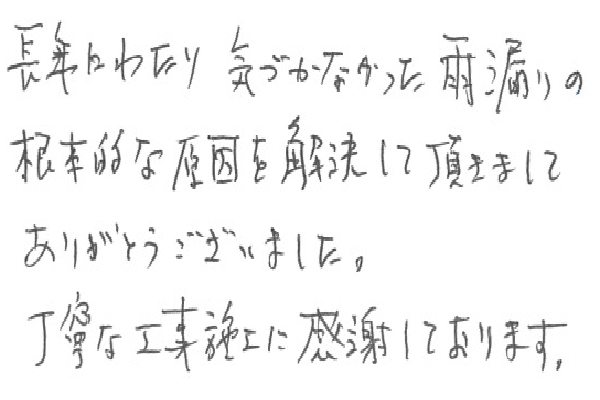 長年にわたり気づかなかった雨漏りの
根本的な原因を解決して頂きまして
ありがとうございました。
丁寧な工事施工に感謝しております。